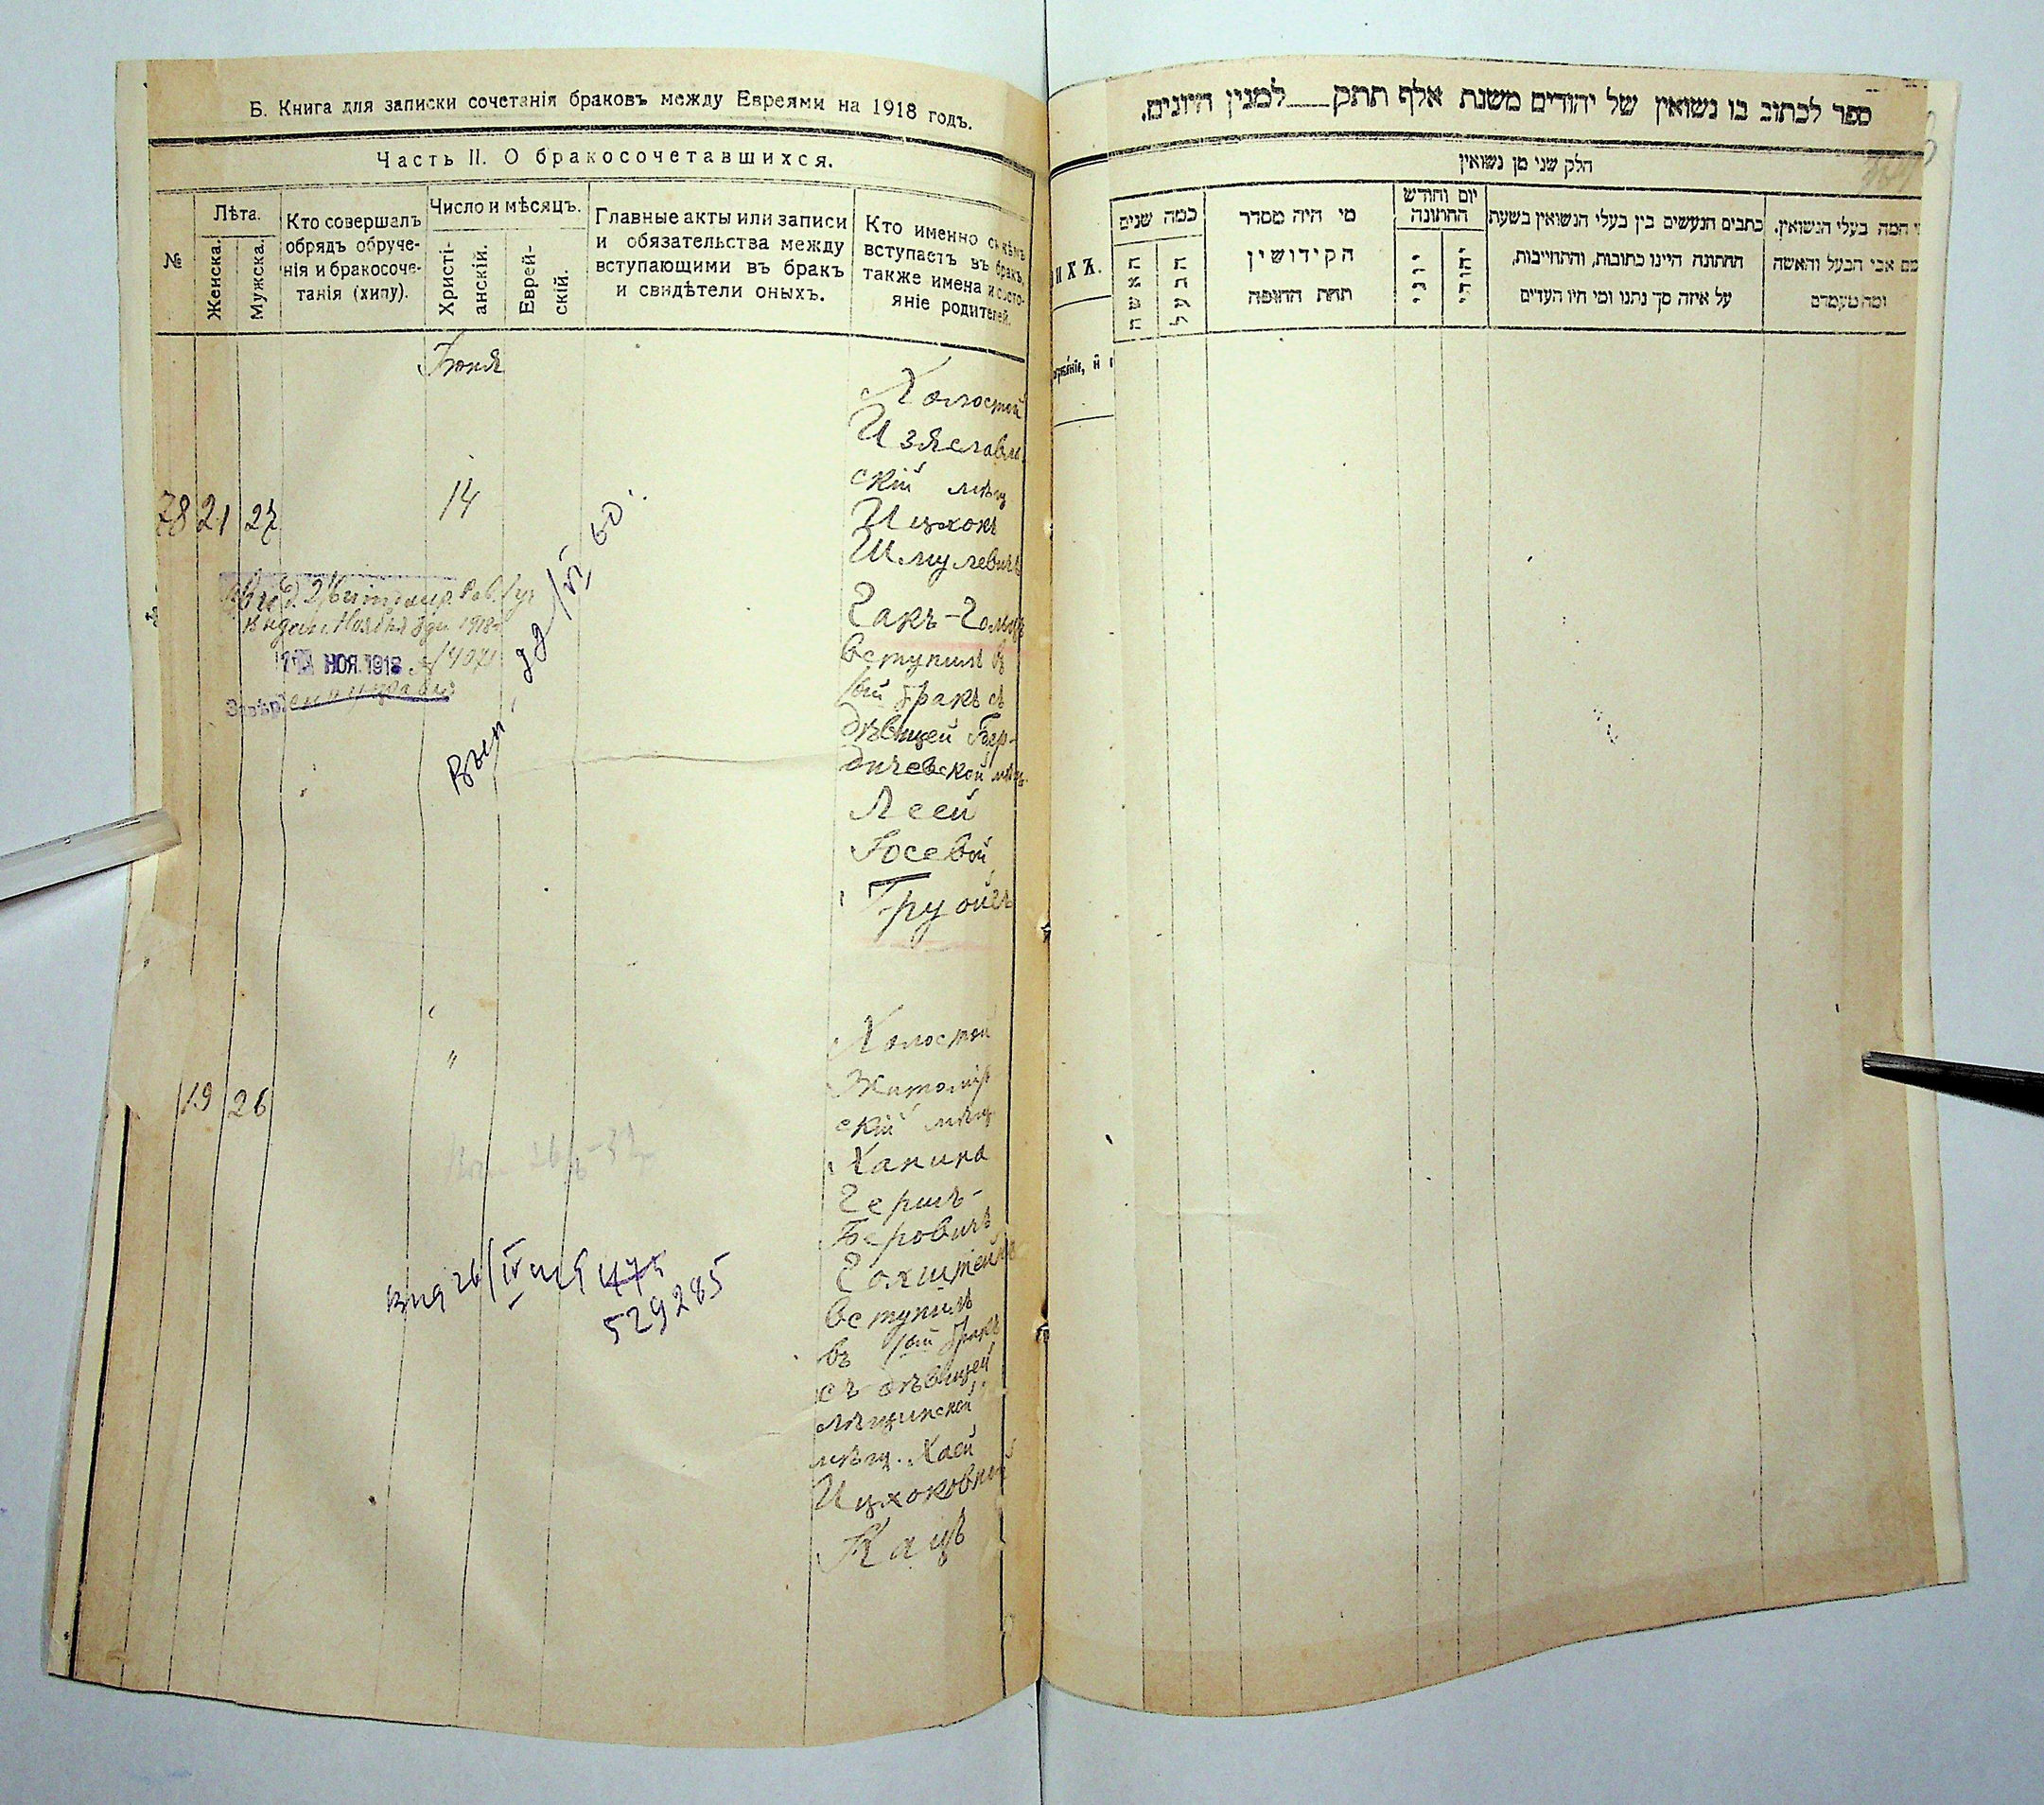 Б. Книга для записки сочетанія браковъ между Евреями на 1918 годъ.
Часть II. О бракосочетавшихся.
№
Лѣта.
Женска.
Мужска.
Кто совершалъ
обрядъ обруче-
нія и бракосоче-
танія (хипу).
Число и мѣсяцъ.
Христі-
анскій.
Еврей-
скій.
Главные акты или записи
и обязательства между
вступающими въ бракъ
и свидѣтели оныхъ.
Кто именно съ кѣмъ
вступаетъ въ бракъ,
также имена и состо-
яніе родителей.
Іюня
78 21 27
14
Холостой
Изяславль
скій мѣщ
Ицхокъ
Шмулевичъ
Гакъ-Гольц
вступилъ в
1ый бракъ съ
дѣвицей Бер-
дичевской мѣщ.
Леей
Іосевой
НОЯ 1918
19 26
"
Холостой
Житомір
скій мѣщ
Ханина
Герш-
Беровичъ
Голштейн
вступилъ
въ 1ый бракъ
съ дѣвицей
мѣщ. Хаей
Ицхоковной
Кацъ
529285
ספר לכתוב בו נשואין של יהודים משנת אלף תתק למנין היונים.
חלק שני מן נשואין
כמה שנים
האשה
הבעל
מי היה מסדר
הקידושין
תחת החופה
יום וחודש
החתונה
יוני
יהודי
כתבים הנעשים בין בעלי הנשואין בשעת
החתונה היינו כתובות, והתחייבות,
על איזה סך נתנו ומי היו העדים
המה בעלי הנשואין.
שם אבי הבעל והאשה
ומה מעמדם
ИХЪ.